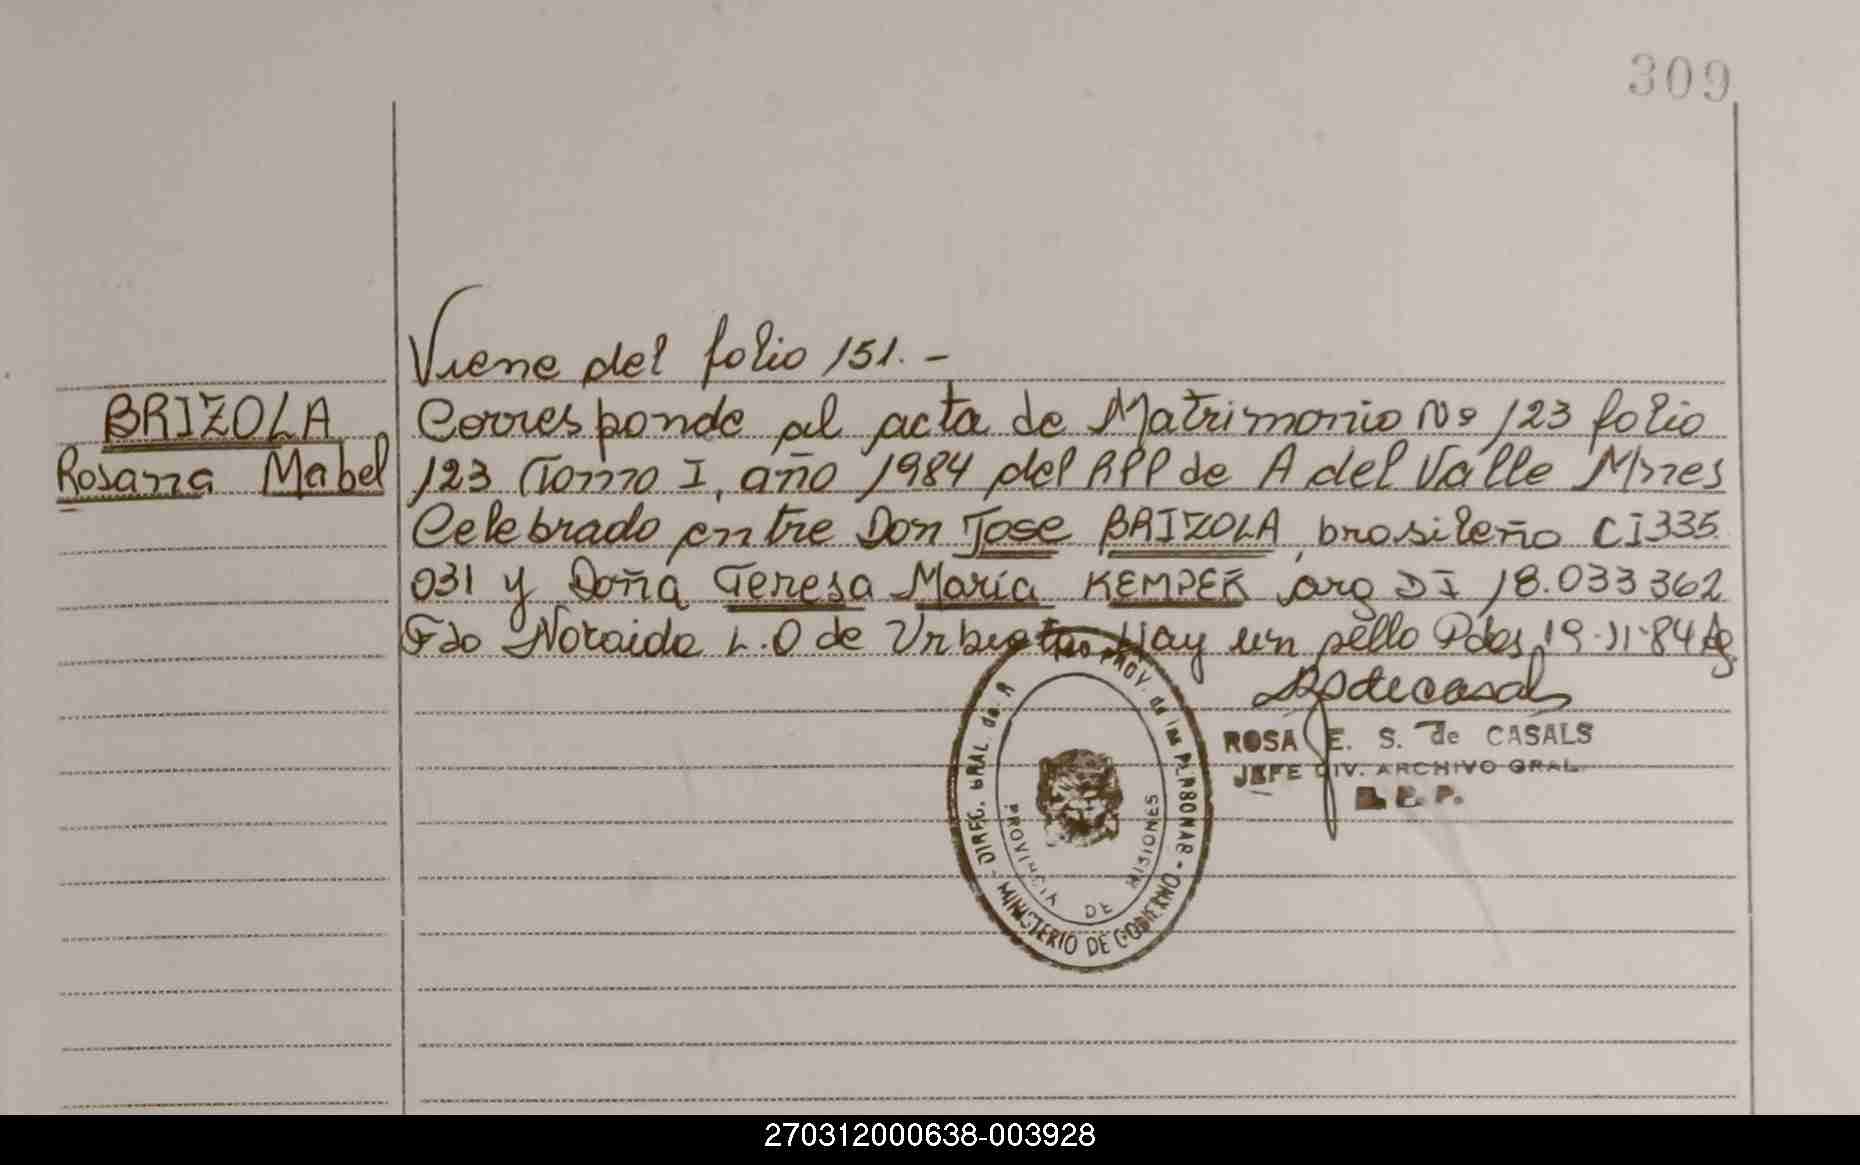 309
Viene del folio 151.-
BRIZOLA
Rosana Mabel
Corresponde al acta de Matrimonio Nº 123 folio
123 Tomo I, año 1984 del RPP de A del Valle Mnes
Celebrado entre Don Jose BRIZOLA, brasileño CI 335.
031 y Doña Teresa María KEMPER arg DI 18.033 362
Fdo Noraida L.O de Urbieta Hay un sello Pdas 19-11-84
ROSA E. S. de CASALS
JEFE DIV. ARCHIVO GRAL.
DIREC. GRAL. de. R PROV. de las PERSONAS - MINISTERIO DE GOBIERNO -
PROVINCIA DE MISIONES
270312000638-003928